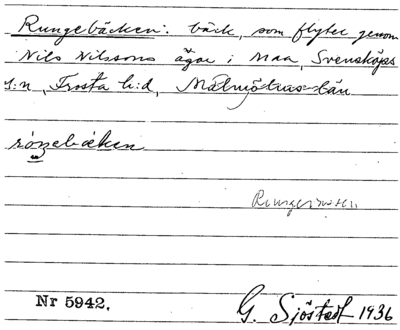 Rungebäcken: bäck, som flyter genom
Nils Nilssons ägor i Maa, Svensköps
s:n, Frosta h:d, Malmöhus län
Nr 5942.
G. Sjöstedt 1936